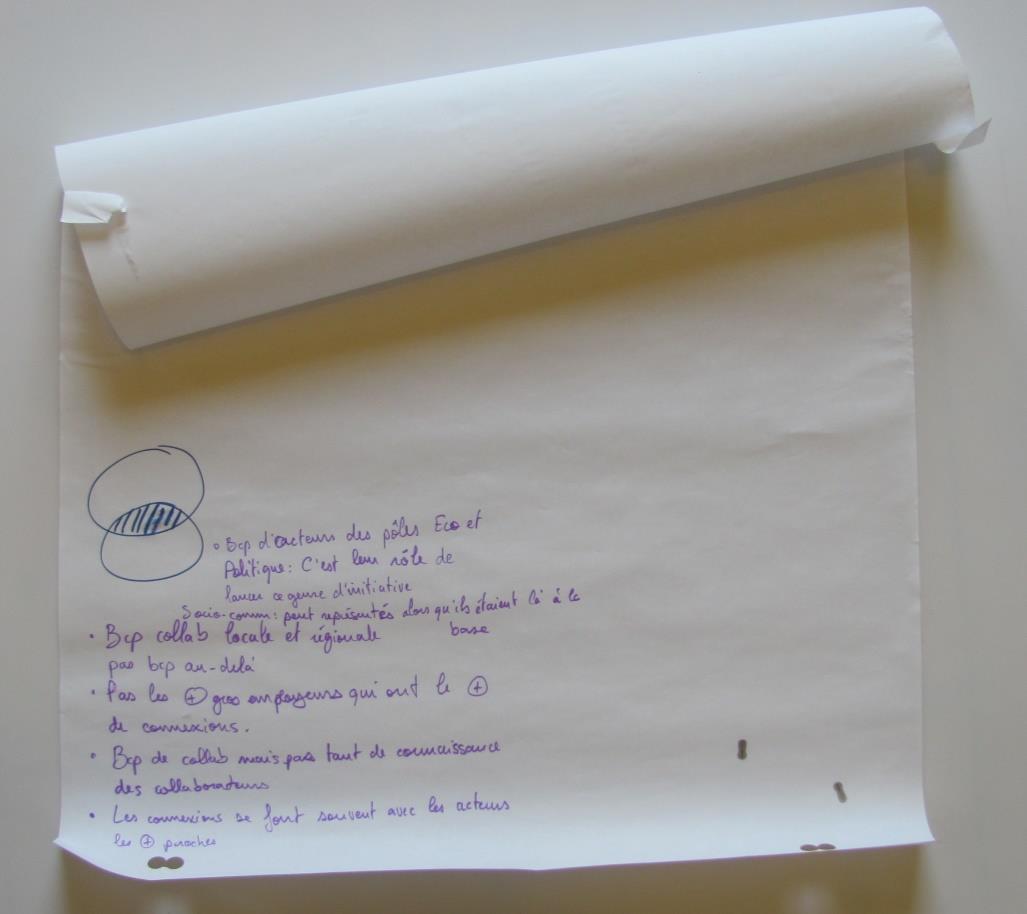 • Bcp d'acteurs des pôles Eco et
Politique : C'est leur rôle de
lancer ce genre d'initiative
Socio-comm : peut représentés alors qu'ils étaient là à la
base
• Bcp collab locale et régionale
pas bcp au-delà
• Pas les + gros employeurs qui ont le +
de connexions.
• Bcp de collab mais pas tant de connaissance
des collaborateurs
• Les connexions se font souvent avec les acteurs
les + proches